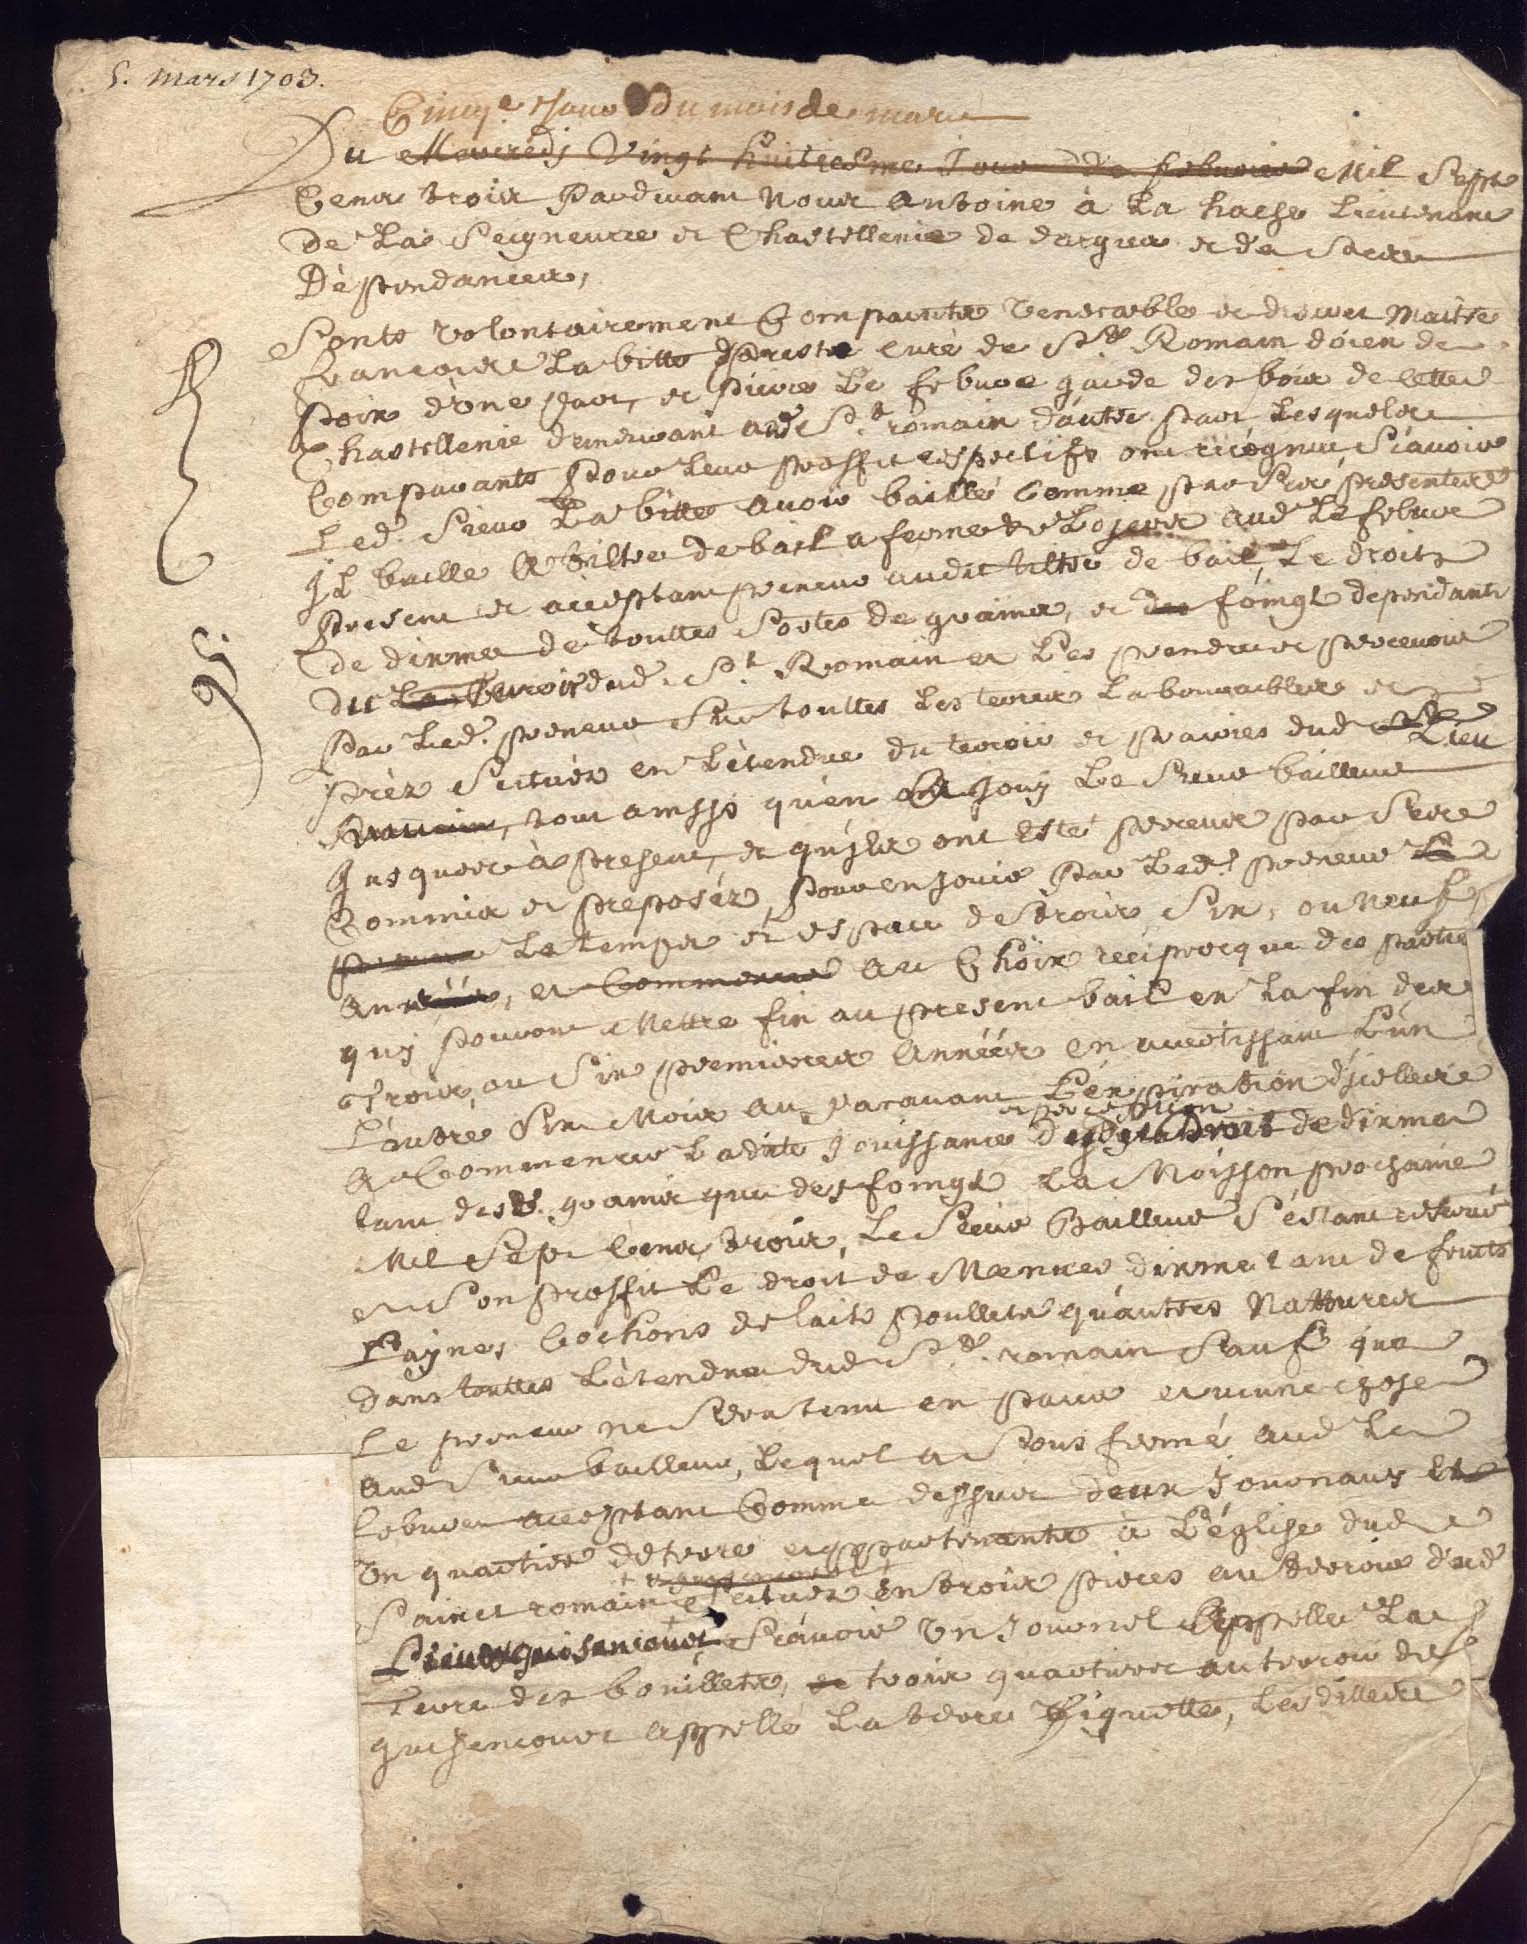 5. Mars 1703.
Cinqe Jour du mois de mars
Du Mercredj Vingt huitiesme Jour de febvrier Mil Sept
Cens trois Pardevant Nous Antoine à La hache Lieutenant
de La Seigneurie et Chastellenie de et de Ses
Dèpendances,
Sonts volontairement Comparuts Venerable et discret Maitre
francois Labitte Prestre curè de St Romain doien de
poix d'une part, et pierre Le febvre garde des bois de cette
Chastellenie demeurant aud St romain d'autre part Lesquels
Comparants Pour Leur proffit respectifs ont recognu Scavoir
Led. Sieur Labitte avoir baillé Comme par Ses presentes
Jl baille A tiltre de bail a ferme et Loyer aud Lefebvre
present et acceptant preneur audit tiltre de bail, Le droit
de dixmes de touttes Sortes de grains, et des foings dependants
du La Curé dud. St. Romain et Les prendre et percevoir
Par Led. preneur Sur touttes Les terres Labourables et
prèz Scituéz en L'étendue du terroir et prairies dud Lieu
Romain, tout ainssy qu'en a Jouy Le Sieur bailleur
Jusques à present, et qu'jls ont esté perceus par Ses
Commis et preposéz, pour en Jouir par Led. preneur
Le temps et espace de trois Six, ou neuf
Années, et Commencer Au Choix reciprocque des parties
quy pouront Mettre fin au present bail en La fin des
trois, ou Six premieres Années en avertissant L'un
L'autre Six Mois au paravant L'expiration d'jcelles
et perception
A Commencer Ladite Jouissance desd. Droit de dixmes
tant desd. grains que des foings La Moisson prochaine
Mil Sept Cens trois, Le Sieur Bailleur S'éstant réservé
a Son proffit Le droit de Menues dixmes tant de fruits
Laynes Cochons de lait poullets qu'autres Nattures
dans touttes L'étendue dud St. romain Sauf que
Le preneur ne Sera tenu en payer aucune chose
Aud Sieur bailleur, Lequel a Sous fermé aud Le
febvre acceptant Comme dessus deux Journaux Et
Un quartier de terre appartenants à L'église dud
Sainct romain Scituez en trois pieces au terroir dud
Lieu Scavoir Un Journel Appellé La
terre des bouillets, et trois quartiers au terroir de
appellé La terre Piquette, Lesdittes